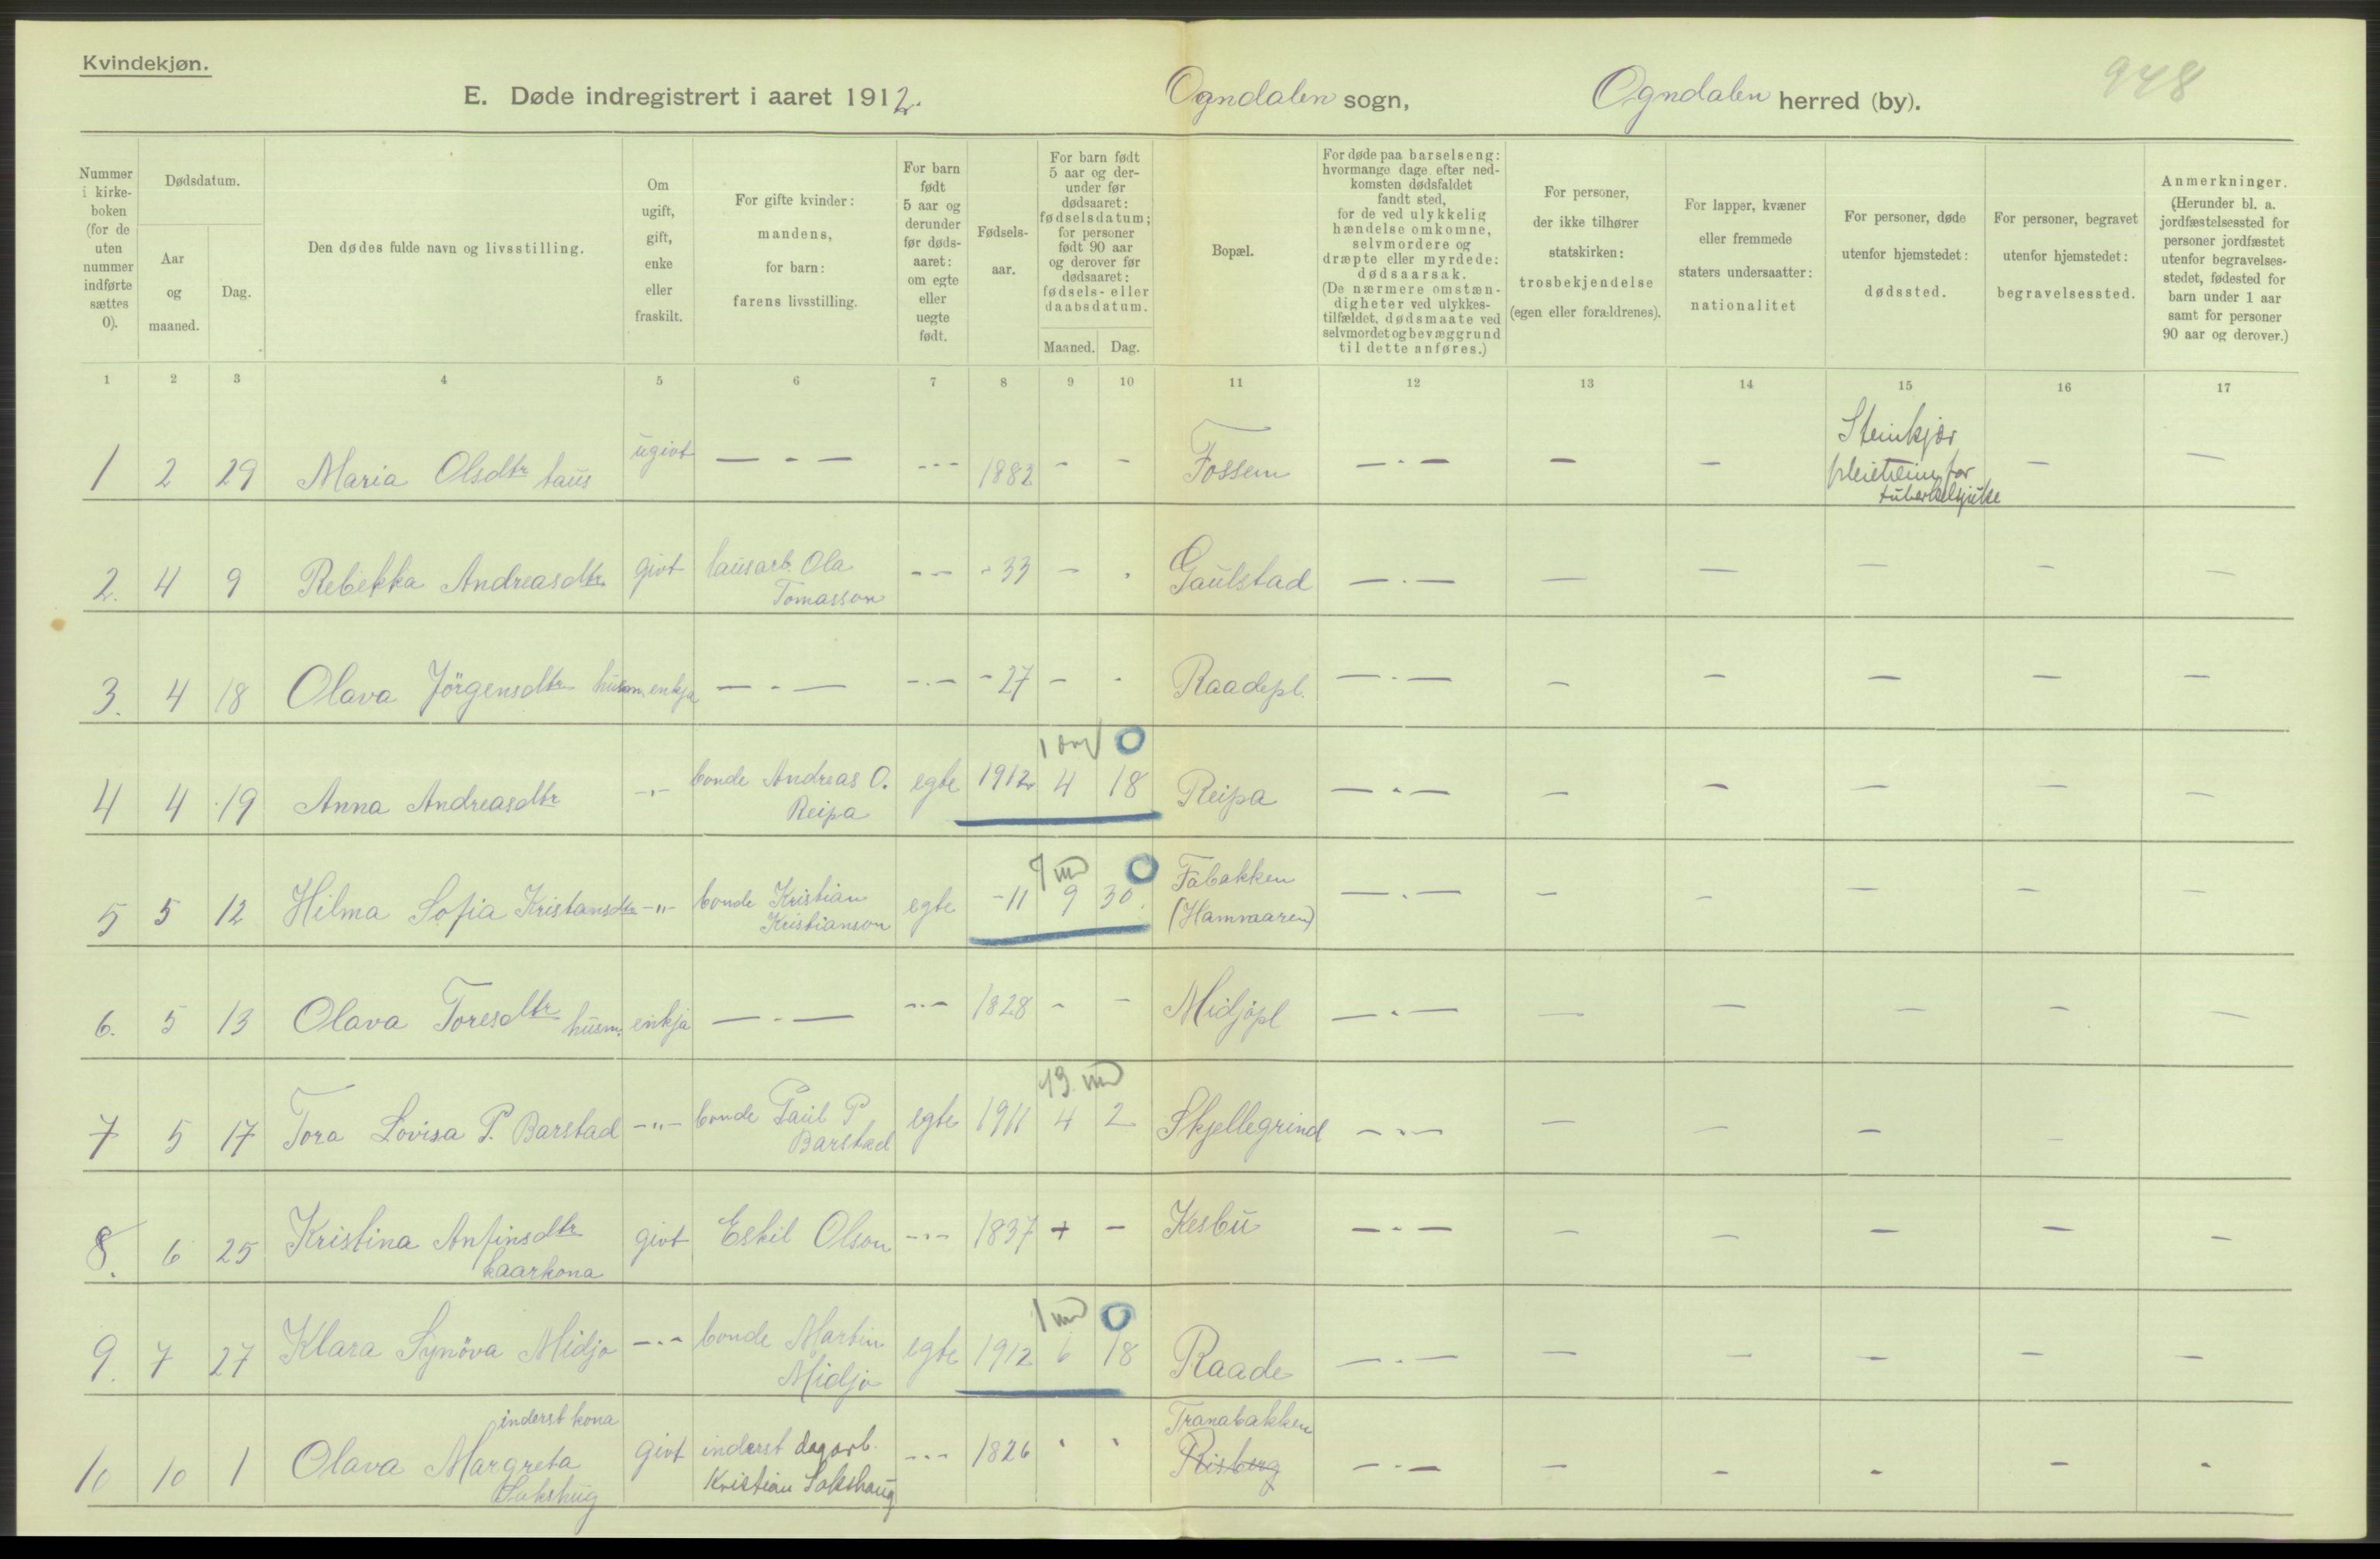 Kvindekjøn.
E. Døde indregistrert i aaret 1912. Ogndalen sogn, Ogndalen herred (by). 948
Nummer i kirke-boken (for de uten nummer indførte sættes 0).
Dødsdatum.
Aar og maaned.
Dag.
Den dødes fulde navn og livsstilling.
Om ugift, gift, enke eller fraskilt.
For gifte kvinder: mandens, for barn: farens livsstilling.
For barn født 5 aar og derunder før døds-aaret: om egte eller uegte født.
Fødsels-aar.
For barn født 5 aar og der-under før dødsaaret: fødselsdatum; for personer født 90 aar og derover før dødsaaret: fødsels- eller daabsdatum.
Maaned. Dag.
Bopæl.
For døde paa barselseng: hvormange dage efter ned-komsten dødsfaldet fandt sted, for de ved ulykkelig hændelse omkomne, selvmordere og dræpte eller myrdede: dødsaarsak. (De nærmere omstæn-digheter ved ulykkes-tilfældet, dødsmaate ved selvmordet og bevæggrund til dette anføres.)
For personer, der ikke tilhører statskirken: trosbekjendelse (egen eller forældrenes).
For lapper, kvæner eller fremmede staters undersaatter: nationalitet
For personer, døde utenfor hjemstedet: dødssted.
For personer, begravet utenfor hjemstedet: begravelsessted.
Anmerkninger. (Herunder bl. a. jordfæstelsessted for personer jordfæstet utenfor begravelses-stedet, fødested for barn under 1 aar samt for personer 90 aar og derover.)
1 2 3 4 5 6 7 8 9 10 11 12 13 14 15 16 17
1 2 29 Maria Olsdtr taus ugivt — - — --- 1882 - - Fossem — - — — — Steinkjær pleieheim for tuberkelsjuke — —
2. 4 9 Rebekka Andreasdtr givt lausarb. Ola Tomasson --- - 33 - - Gaulstad — - — — — — — —
3. 4 18 Olava Jörgensdtr husm. enkja — - — --- - 27 - - Raadepl. — - — — — — — —
1 0
4 4 19 Anna Andreasdtr -"- bonde Andreas O. Reipa egte 1912 4 18 Reipa — - — — — — — —
7 m 0
5 5 12 Hilma Sofia Kristiansdtr -"- bonde Kristian Kristianson egte - 11 9 30. Fabakken (Hammaren) — - — — — — — —
6. 5 13 Olava Toresdtr husm. enkja — - — --- 1828 - - Midjöpl — - — — — — — —
13 m
7 5 17 Tora Lovisa P. Barstad -"- bonde Paul P Barstad egte 1911 4 2 Skjellegrind — - — — — — — —
8. 6 25 Kristina Anfinsdtr kaarkona givt Eskil Olson --- 1837 + - Kesbu — - — — — — — —
1 m 0
9. 7 27 Klara Synöva Midjo -"- bonde Martin Midjo egte 1912 6 18 Raade — - — — — — — —
10 10 1 Olava Margreta Sakshug inderst kona givt inderst dagarb. Kristian Sakshaug --- 1826 - - Tranabakken Risberg — - — — — — — -